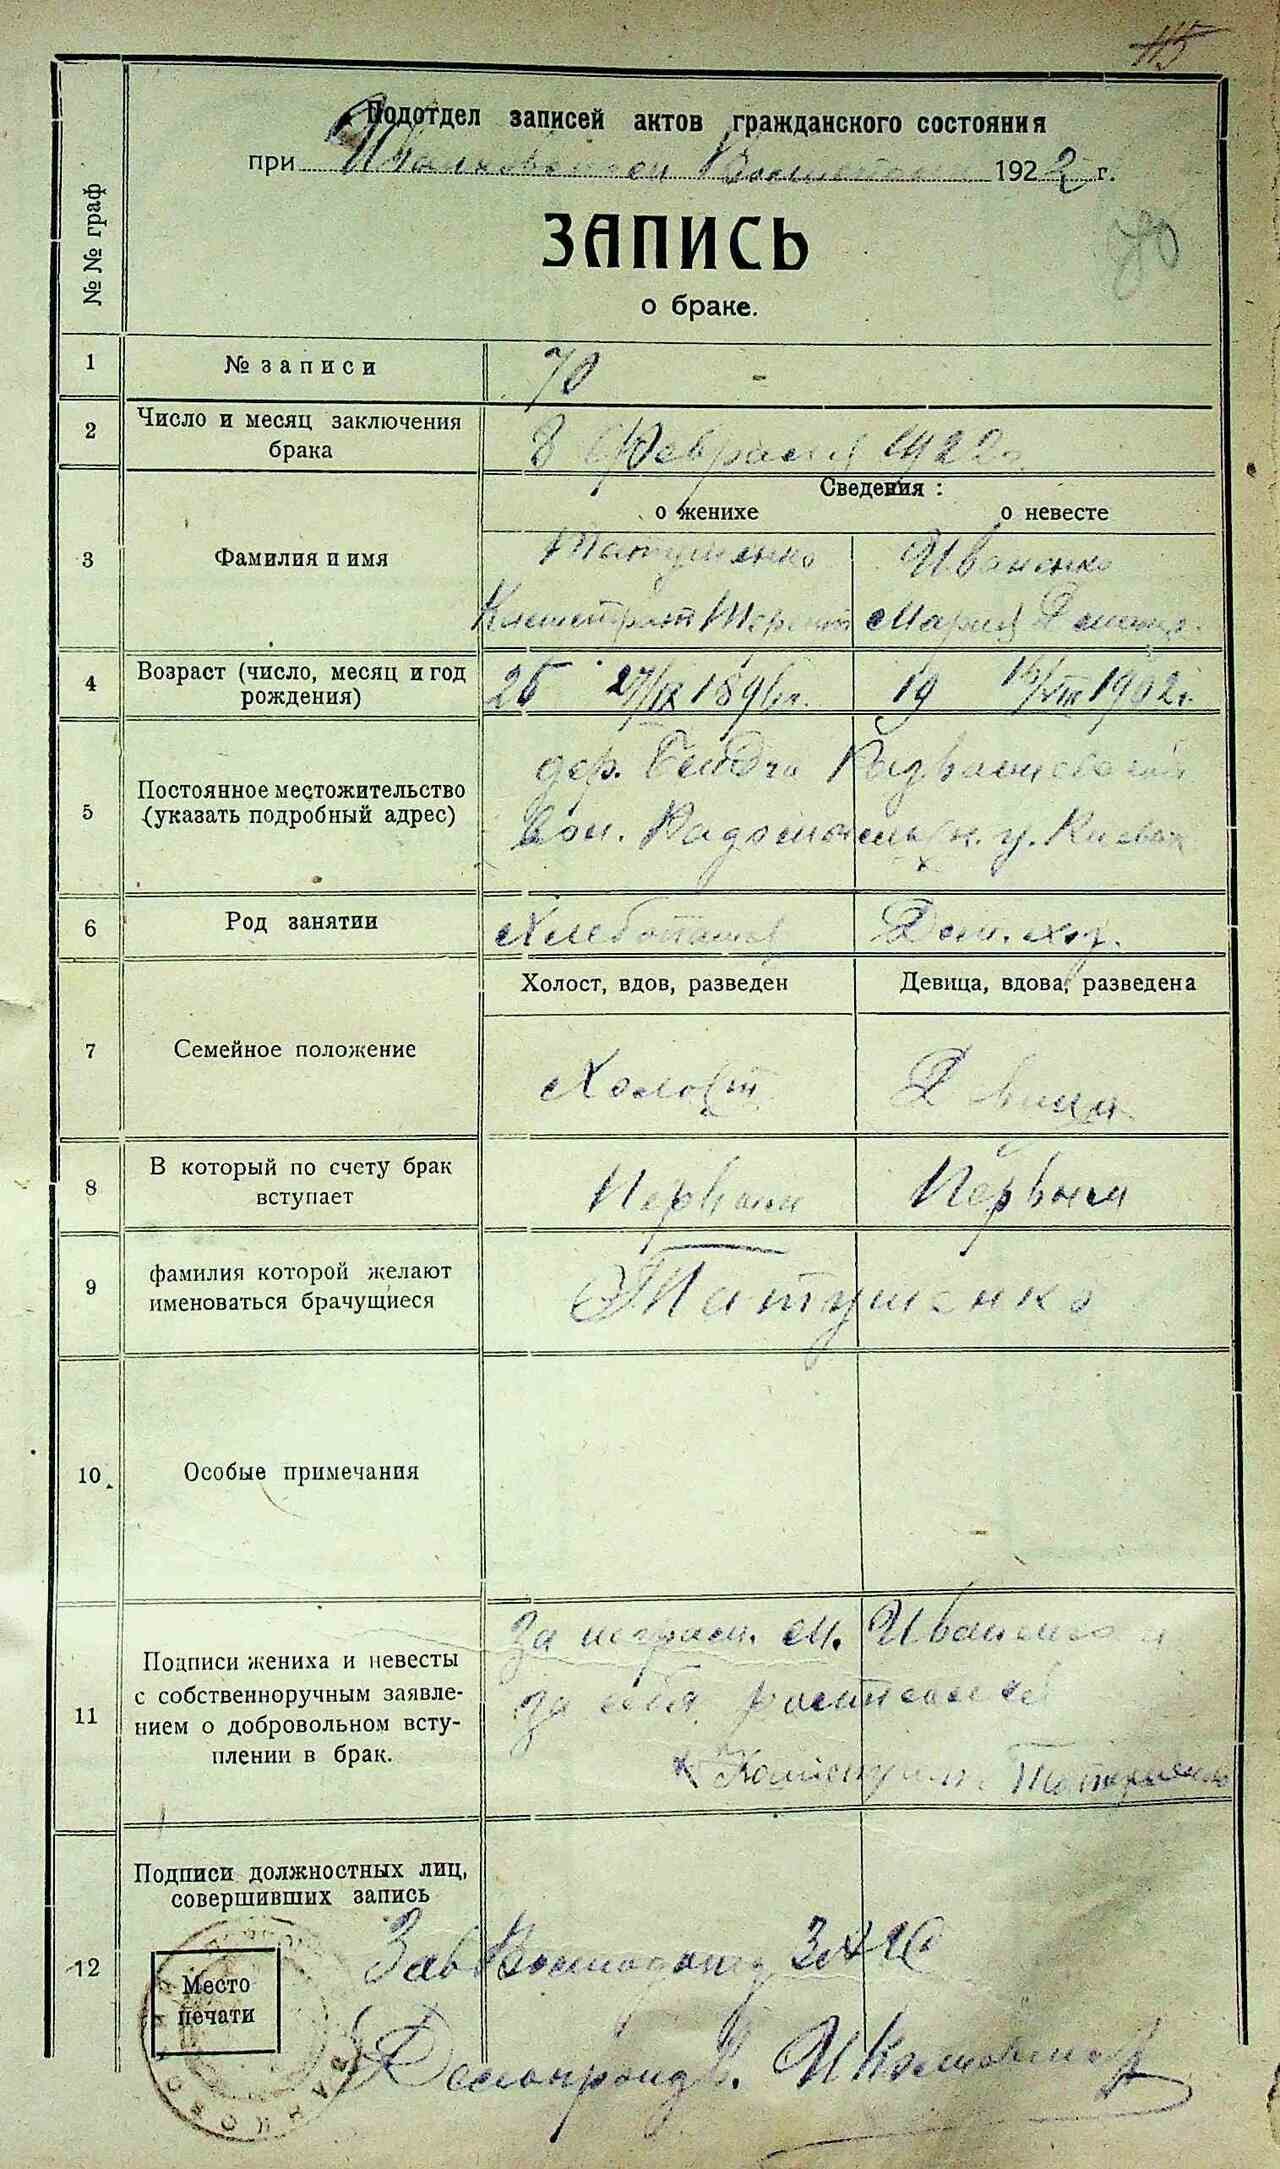 115
Подотдел записей актов гражданского состояния
при Иванковской 1922 г.
ЗАПИСЬ
70
о браке.
№ № граф
1 № записи 70
2 Число и месяц заключения брака 8 Февраля 1922 г.
Сведения :
о женихе о невесте
3 Фамилия и имя Татушенко Иваненко
Мария
4 Возраст (число, месяц и год рождения) 25 27/IX 1896 г. 19 16/VIII 1902 г.
5 Постоянное местожительство (указать подробный адрес) дер.
вол. у. Киевск
6 Род занятии Хлебопашец Дом. хоз.
Холост, вдов, разведен Девица, вдова, разведена
7 Семейное положение Холост Девица
8 В который по счету брак вступает Первый Первый
9 фамилия которой желают именоваться брачущиеся Татушенко
10 Особые примечания
11 Подписи жениха и невесты с собственноручным заявлением о добровольном вступлении в брак.
За неграм. М. Иваненко и
за себя
Татушенко
12 Подписи должностных лиц, совершивших запись
Место печати
Зав ЗАГС
Делопроизв.